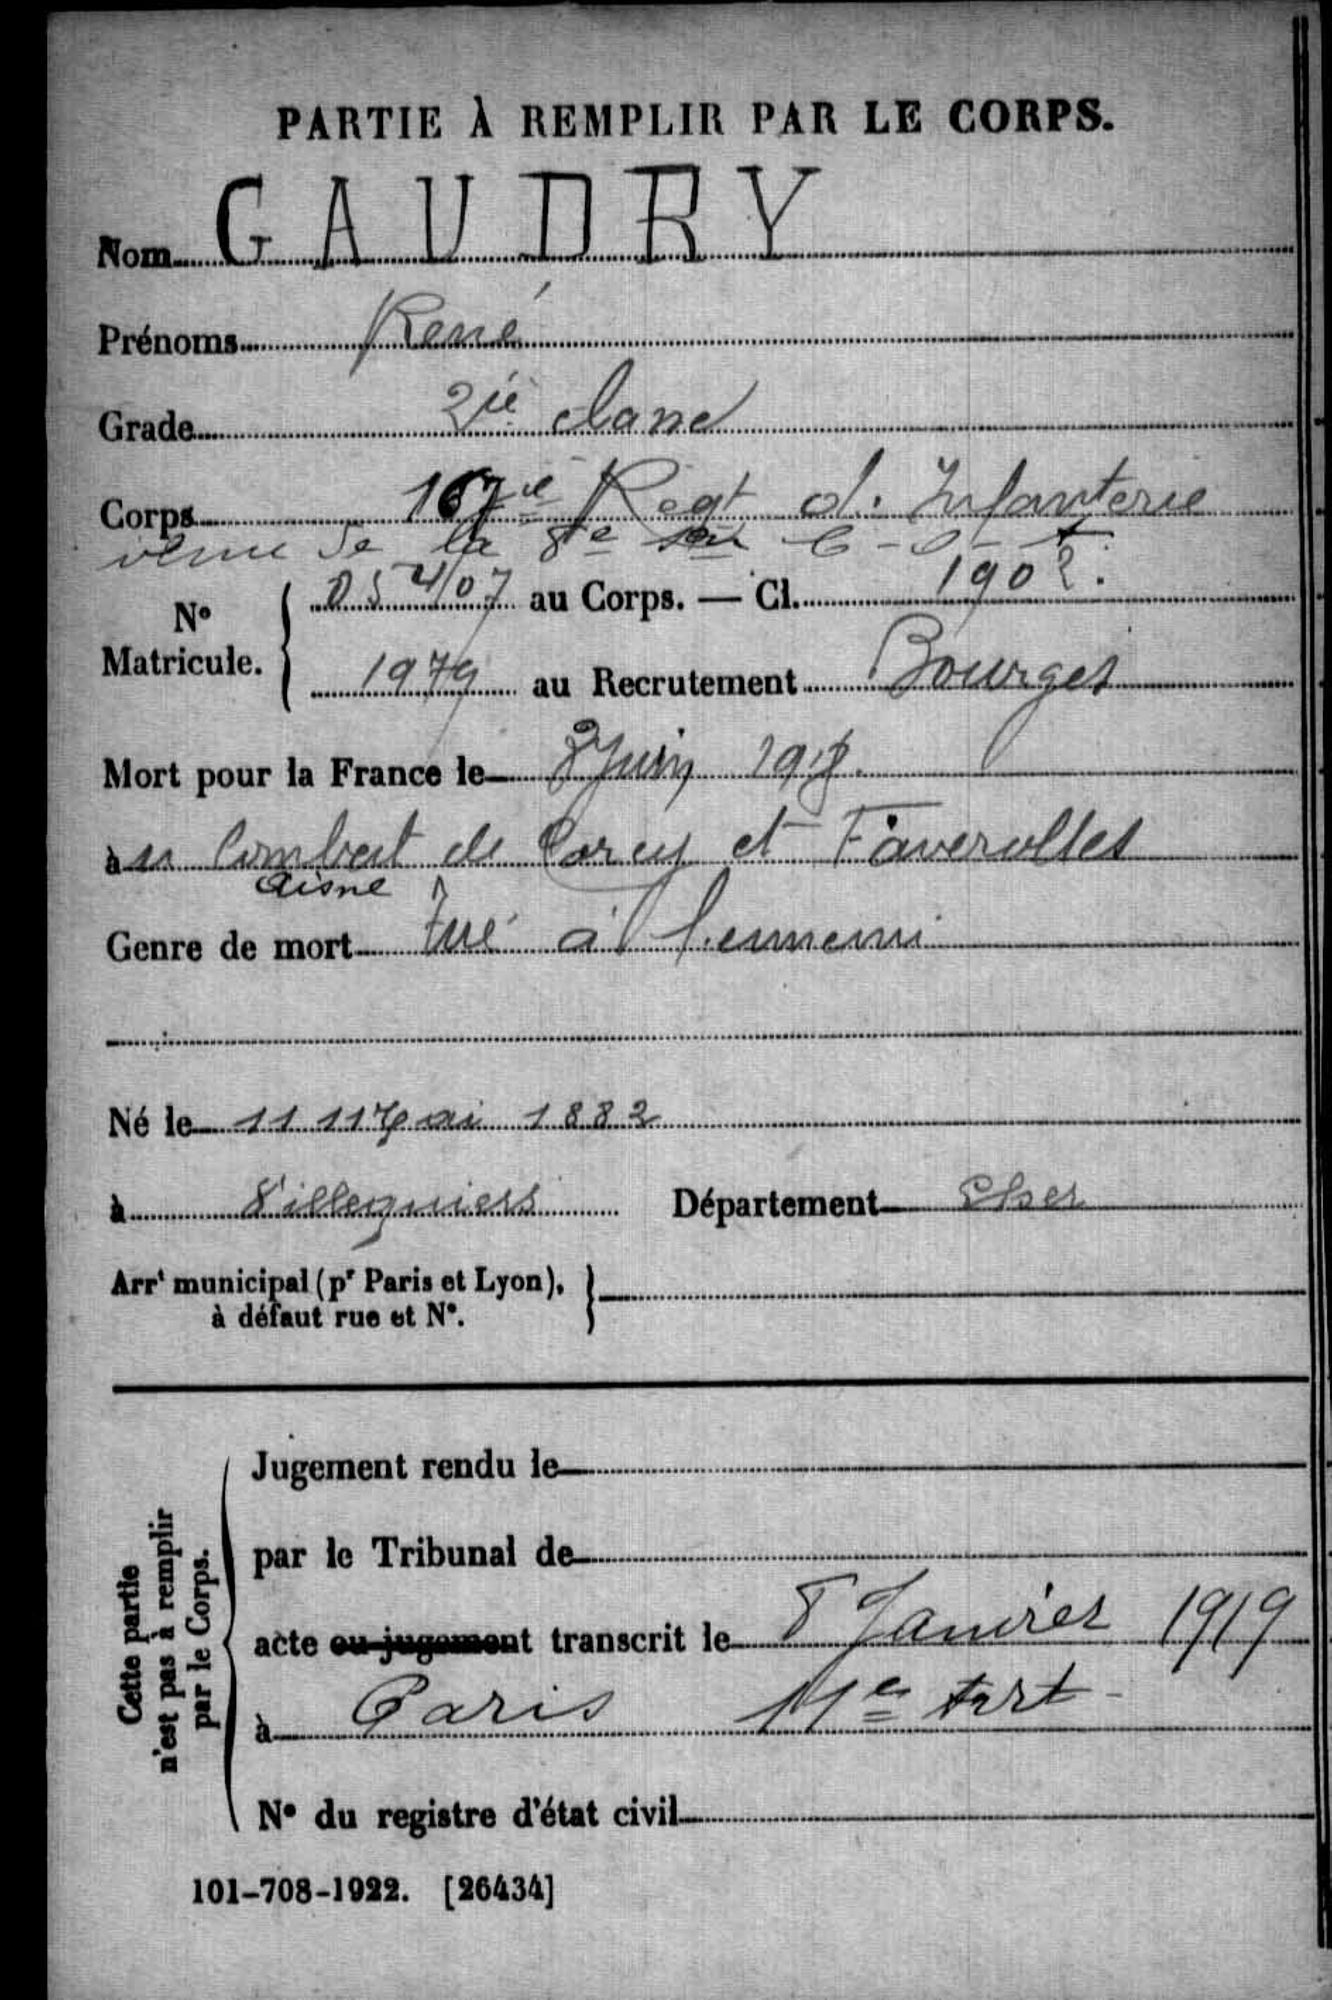 PARTIE À REMPLIR PAR LE CORPS.
Nom GAUDRY
Prénoms René
Grade 2ie classe
Corps 167ie Regt d. Infanterie
venu de la 8e son C-O-A
N° Matricule. 05407 au Corps. — Cl. 1902.
1979 au Recrutement Bourges
Mort pour la France le 3 Juin 1918.
à u Combat de Corcy et Faverolles
Aisne
Genre de mort tué à l'ennemi
Né le 11 Mai 1882
à Villequiers Département Cher
Arrt municipal (pr Paris et Lyon),
à défaut rue et N°.
Cette partie n'est pas à remplir par le Corps.
Jugement rendu le
par le Tribunal de
acte ou jugement transcrit le 8 Janvier 1919
à Paris 11e Art
N° du registre d'état civil
101-708-1922. [26434]